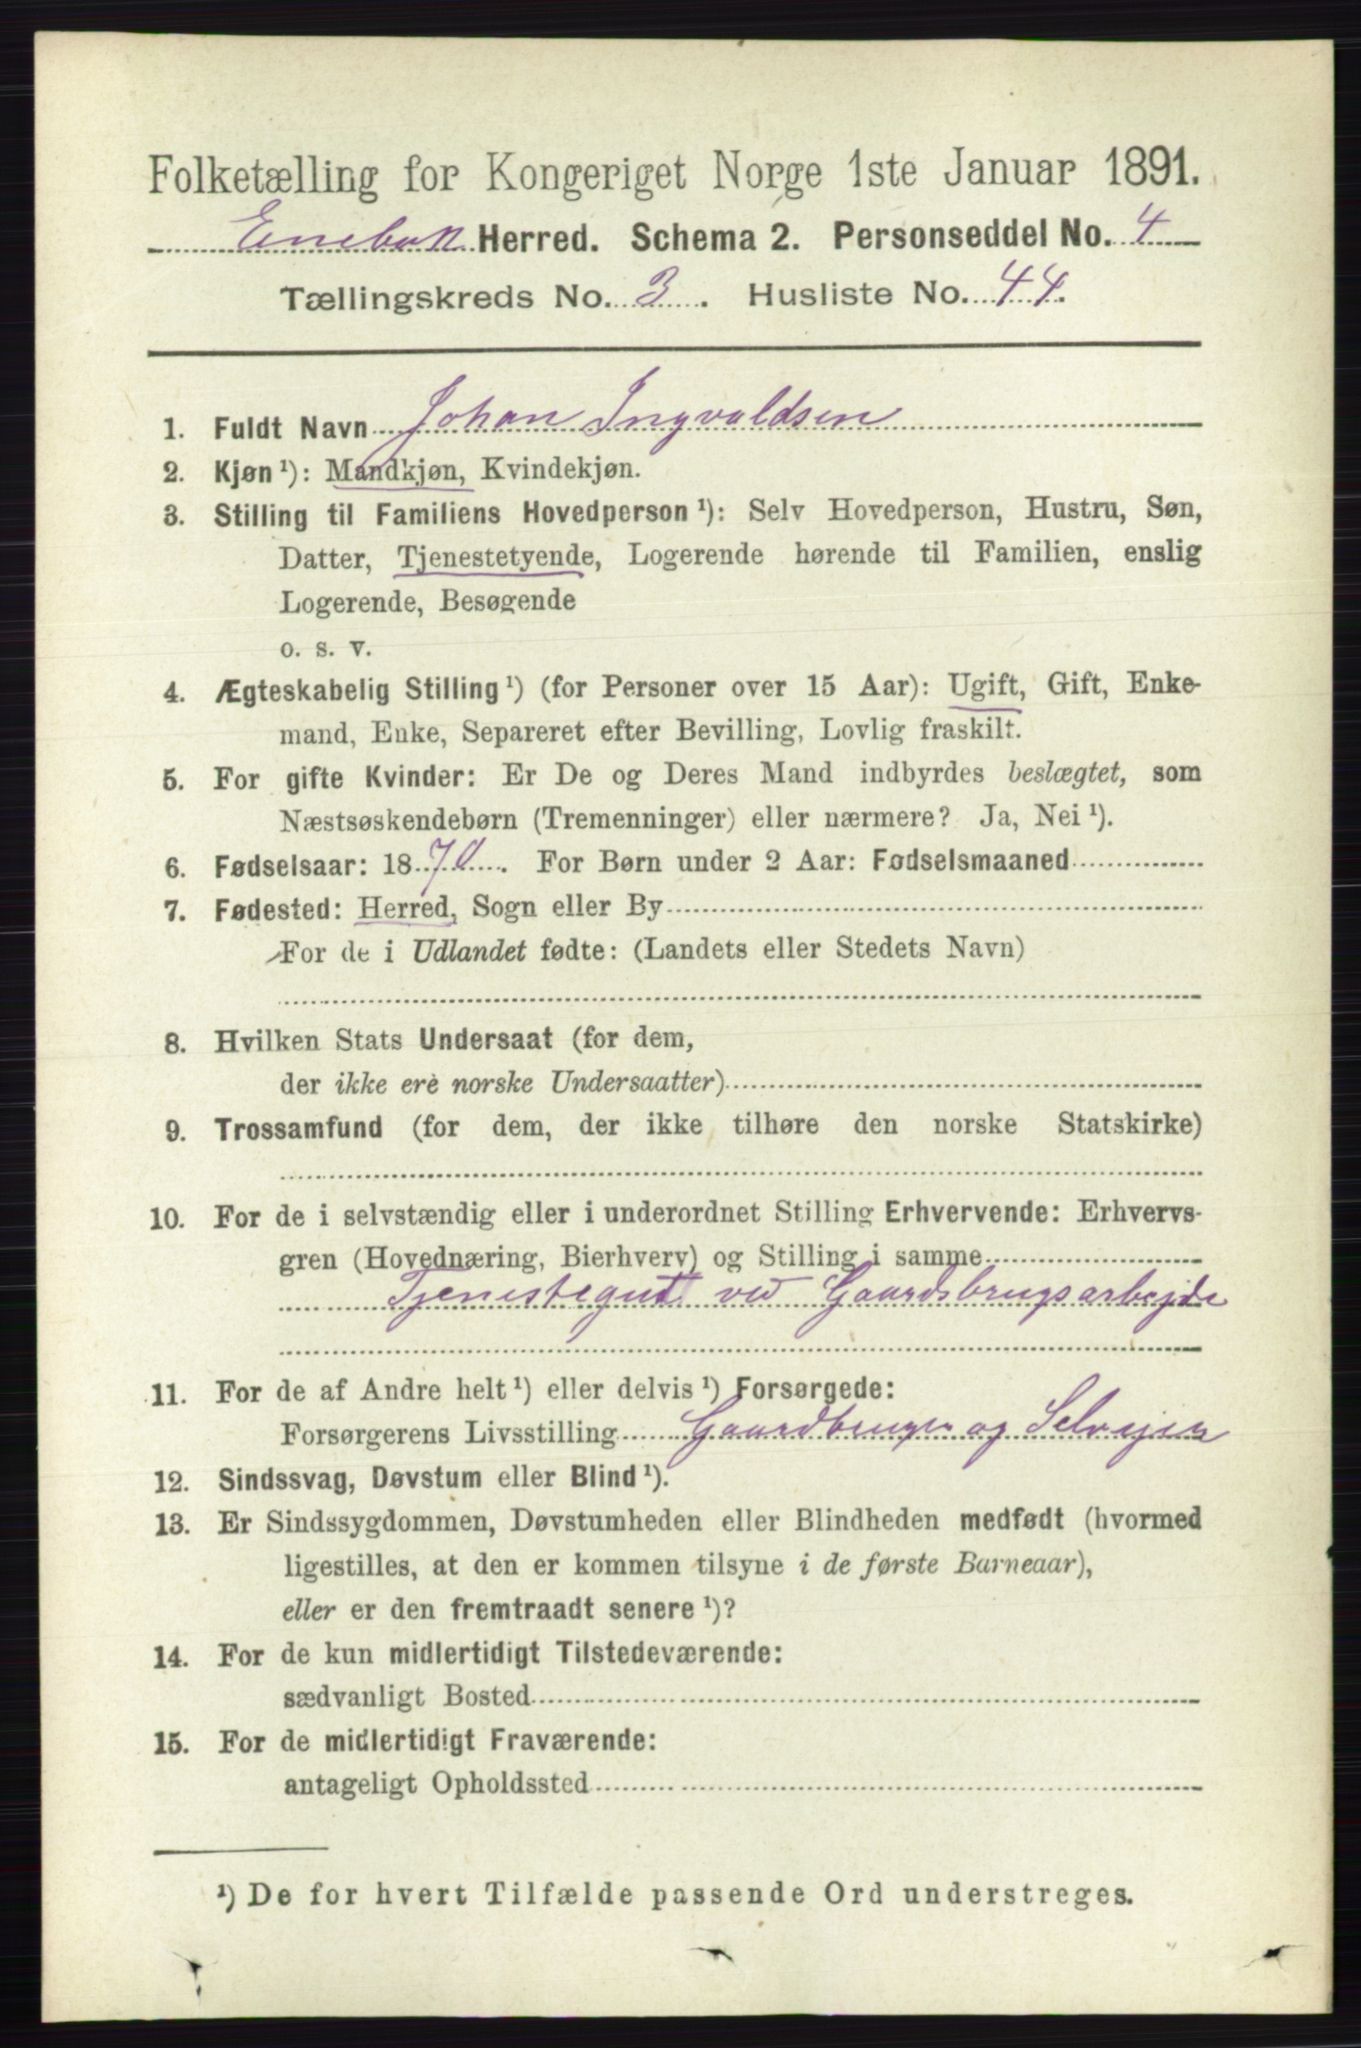 Folketælling for Kongeriget Norge 1ste Januar 1891.
Enebak Herred. Schema 2. Personseddel No. 4
Tællingskreds No. 3. Husliste No. 44.
1. Fuldt Navn Johan Ingvaldsen
2. Kjøn ¹): Mandkjøn, Kvindekjøn.
3. Stilling til Familiens Hovedperson ¹): Selv Hovedperson, Hustru, Søn,
Datter, Tjenestetyende, Logerende hørende til Familien, enslig
Logerende, Besøgende
o. s. v.
4. Ægteskabelig Stilling ¹) (for Personer over 15 Aar): Ugift, Gift, Enke-
mand, Enke, Separeret efter Bevilling, Lovlig fraskilt.
5. For gifte Kvinder: Er De og Deres Mand indbyrdes beslægtet, som
Næstsøskendebørn (Tremenninger) eller nærmere? Ja, Nei ¹).
6. Fødselsaar: 1870. For Børn under 2 Aar: Fødselsmaaned
7. Fødested: Herred, Sogn eller By
For de i Udlandet fødte: (Landets eller Stedets Navn)
8. Hvilken Stats Undersaat (for dem,
der ikke ere norske Undersaatter)
9. Trossamfund (for dem, der ikke tilhøre den norske Statskirke)
10. For de i selvstændig eller i underordnet Stilling Erhvervende: Erhvervs-
gren (Hovednæring, Bierhverv) og Stilling i samme
Tjenestegut ved Gaardsbrugsarbejde
11. For de af Andre helt ¹) eller delvis ¹) Forsørgede:
Forsørgerens Livsstilling Gaardbruger og Selvejer
12. Sindssvag, Døvstum eller Blind ¹).
13. Er Sindssygdommen, Døvstumheden eller Blindheden medfødt (hvormed
ligestilles, at den er kommen tilsyne i de første Barneaar),
eller er den fremtraadt senere ¹)?
14. For de kun midlertidigt Tilstedeværende:
sædvanligt Bosted
15. For de midlertidigt Fraværende:
antageligt Opholdssted
¹) De for hvert Tilfælde passende Ord understreges.